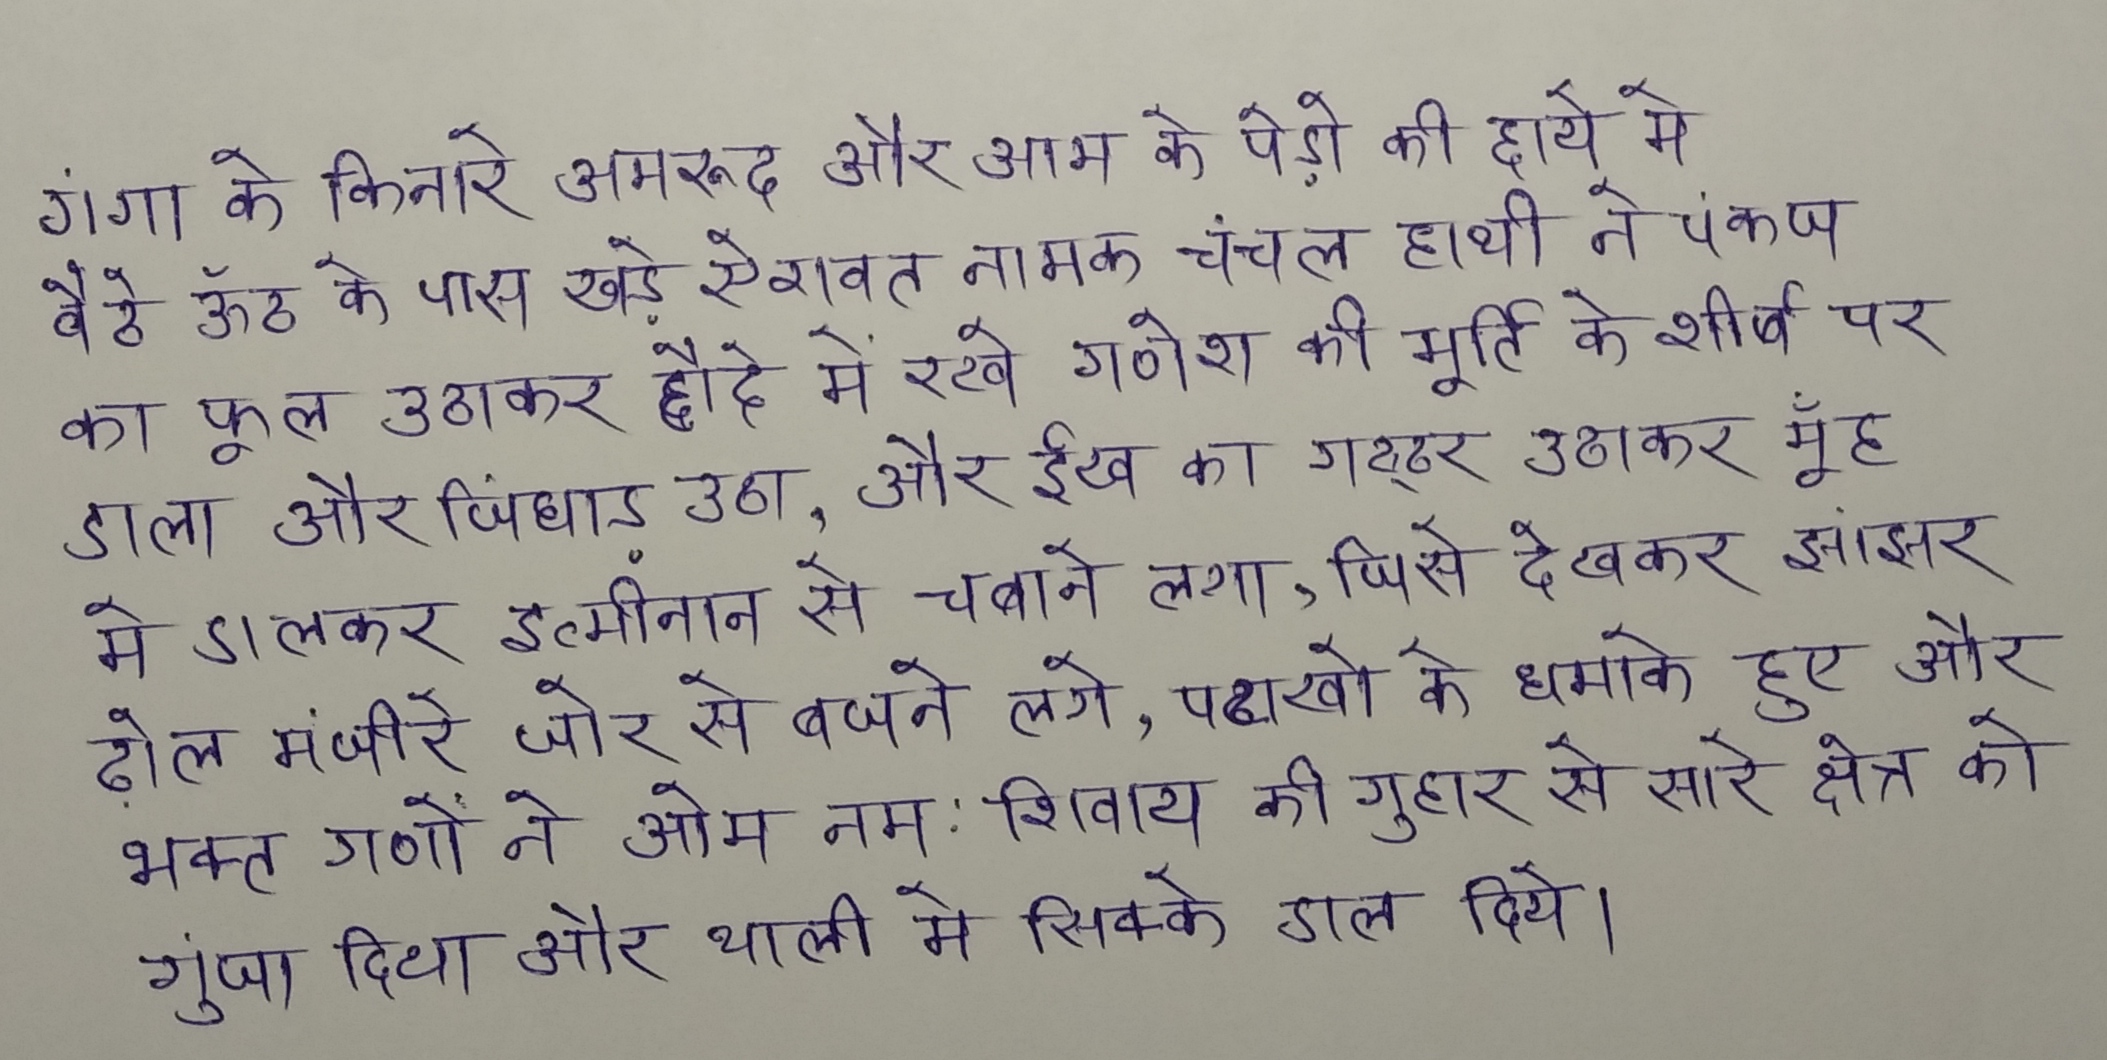 गंगा के किनारे अमरूद और आम के पेड़ो की छाये मे
बैठे ऊँठ के पास खड़े ऐरावत नामक चंचल हाथी ने पंकज
का फूल उठाकर हौदे में रखे गणेश की मूर्ति के शीर्ष पर
डाला और चिंघाड़ उठा, और ईख का गट्ठर उठाकर मूँह
मे डालकर इत्मीनान से चबाने लगा, जिसे देखकर झांझर
ढ़ोल मंजीरे जोर से बजने लगे, पटाखो के धमाके हुए और
भक्त गणों ने ओम नमः शिवाय की गुहार से सारे क्षेत्र को
गुंजा दिया और थाली मे सिक्के डाल दिये।